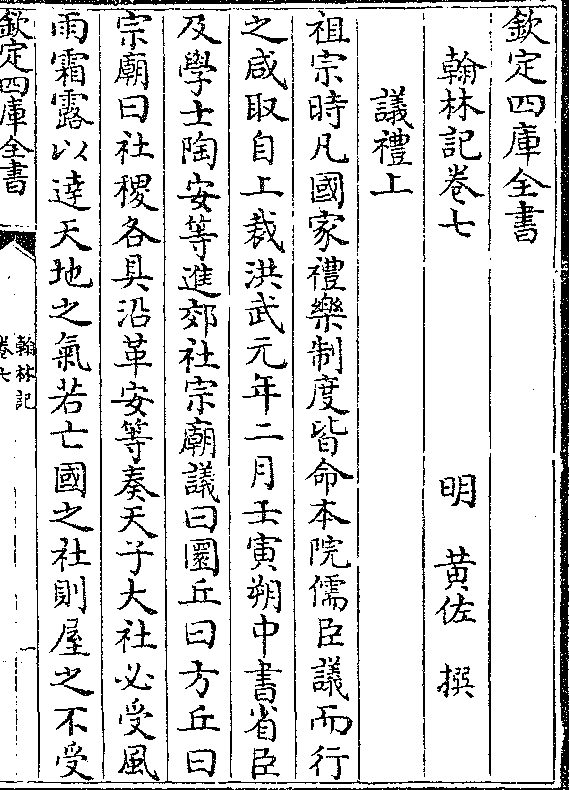 欽定四庫全書
翰林記卷七
明 黃佐 撰
議禮上
祖宗時凡國家禮樂制度皆命本院儒臣議而行
之咸取自上裁洪武元年二月壬寅朔中書省臣
及學士陶安等進郊社宗廟議曰圜丘曰方丘曰
宗廟曰社稷各具沿革安等奏天子大社必受風
雨霜露以達天地之氣若亡國之社則屋之不受
欽定四庫全書
翰林記
卷七
一